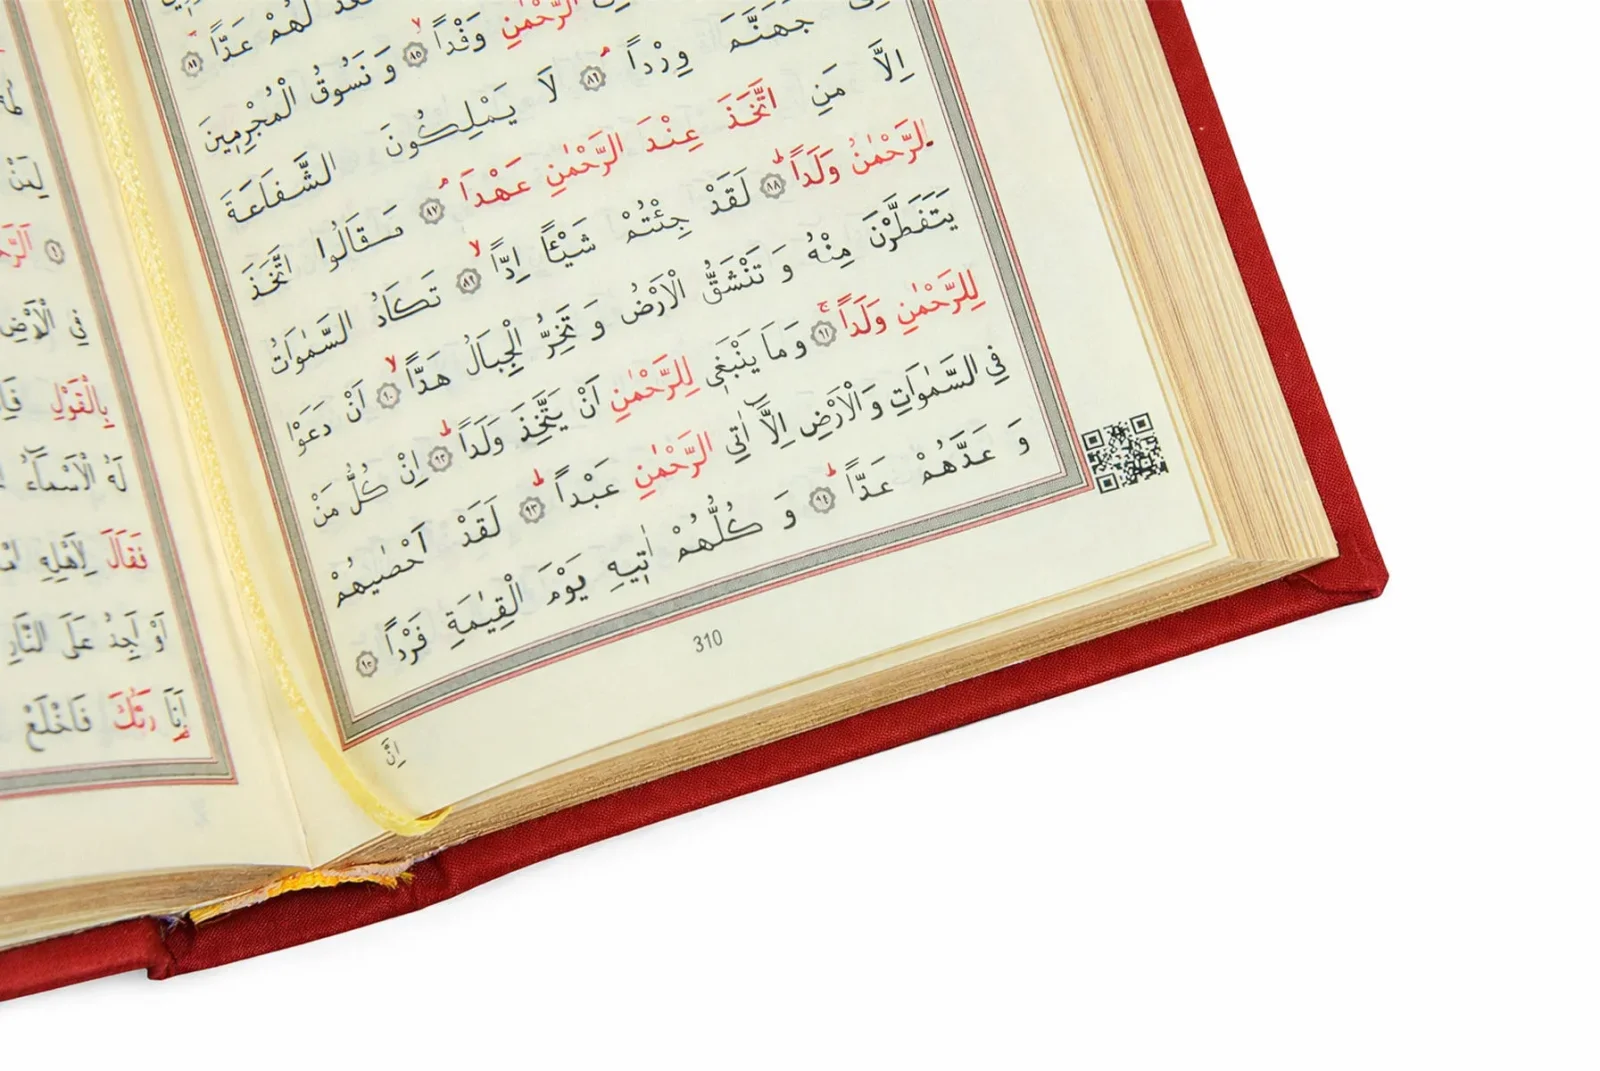 لَهُمْ عَدًّا ٨٤
الرَّحْمٰنِ وَفْدًا ٨٥ وَ نَسُوقُ الْمُجْرِمِينَ
جَهَنَّمَ وِرْدًا ٨٦ لَا يَمْلِكُونَ الشَّفَاعَةَ
اِلَّا مَنِ اتَّخَذَ عِنْدَ الرَّحْمٰنِ عَهْدًا ٨٧ وَقَالُوا اتَّخَذَ
الرَّحْمٰنُ وَلَدًا ٨٨ لَقَدْ جِئْتُمْ شَيْـًٔا اِدًّا ٨٩ تَكَادُ السَّمٰوَاتُ
يَتَفَطَّرْنَ مِنْهُ وَ تَنْشَقُّ الْاَرْضُ وَ تَخِرُّ الْجِبَالُ هَدًّا ٩٠ اَنْ دَعَوْا
لِلرَّحْمٰنِ وَلَدًا ٩١ وَمَا يَنْبَغِي لِلرَّحْمٰنِ اَنْ يَتَّخِذَ وَلَدًا ٩٢ اِنْ كُلُّ مَنْ
فِي السَّمٰوَاتِ وَالْاَرْضِ اِلَّٓا اٰتِي الرَّحْمٰنِ عَبْدًا ٩٣ لَقَدْ اَحْصٰيهُمْ
وَ عَدَّهُمْ عَدًّا ٩٤ وَ كُلُّهُمْ اٰتِيهِ يَوْمَ الْقِيٰمَةِ فَرْدًا ٩٥
310
اِنَّ
فِي الْاَرْضِ
بِالْقَوْلِ
لَهُ الْاَسْمَٓاءُ
فَقَالَ لِاَهْلِهِ
اَوْ اَجِدُ عَلَى النَّارِ
اَنَا رَبُّكَ فَاخْلَعْ